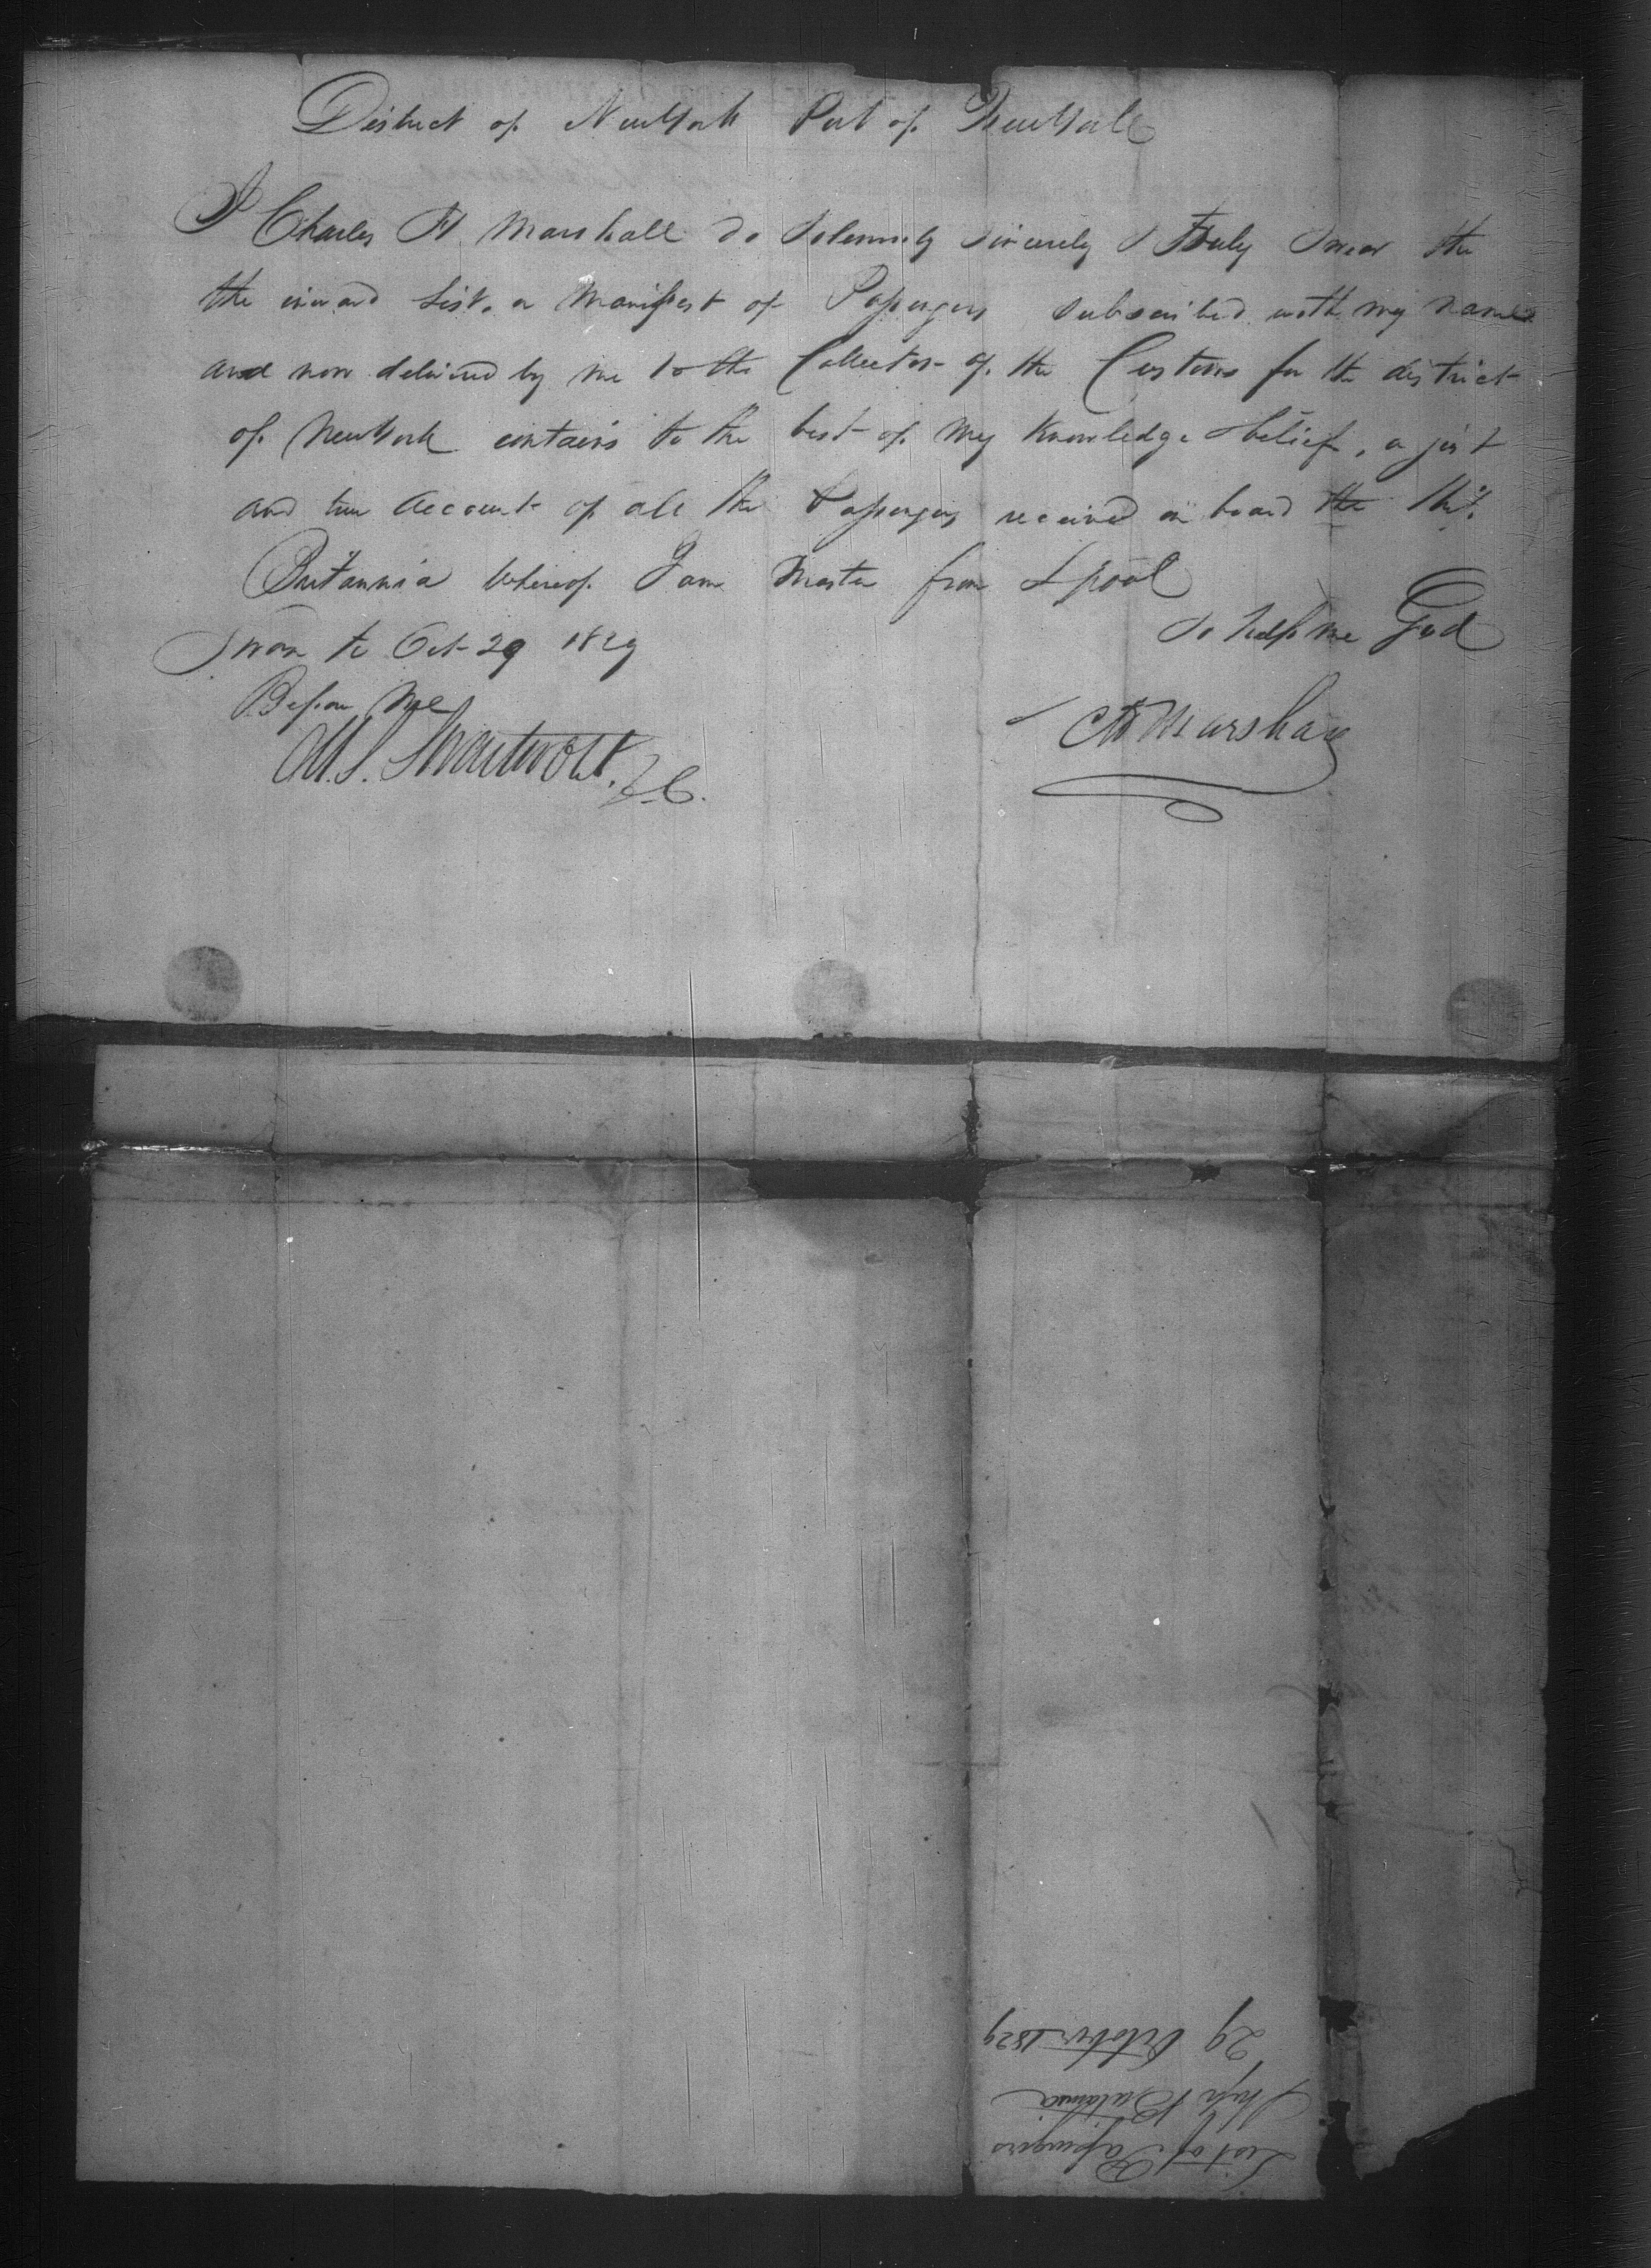 District of New York Port of New York
I Charles H Marshall do Solemnly Sincerely & Truly Swear the
the inward List or Manifest of Passengers subscribed with my name
and now delivered by me to the Collector of the Customs for the district
of New York contains to the best of my knowledge & belief, a just
and true Account of all the Passengers received on board the Ship
Britannia Whereof I am Master from Lpool
So help me God
Sworn to Oct 29 1829
Before Me
CH Marshall
M.S. Swartwout. D.C.
List of Passengers
Ship Britannia
29 October 1829